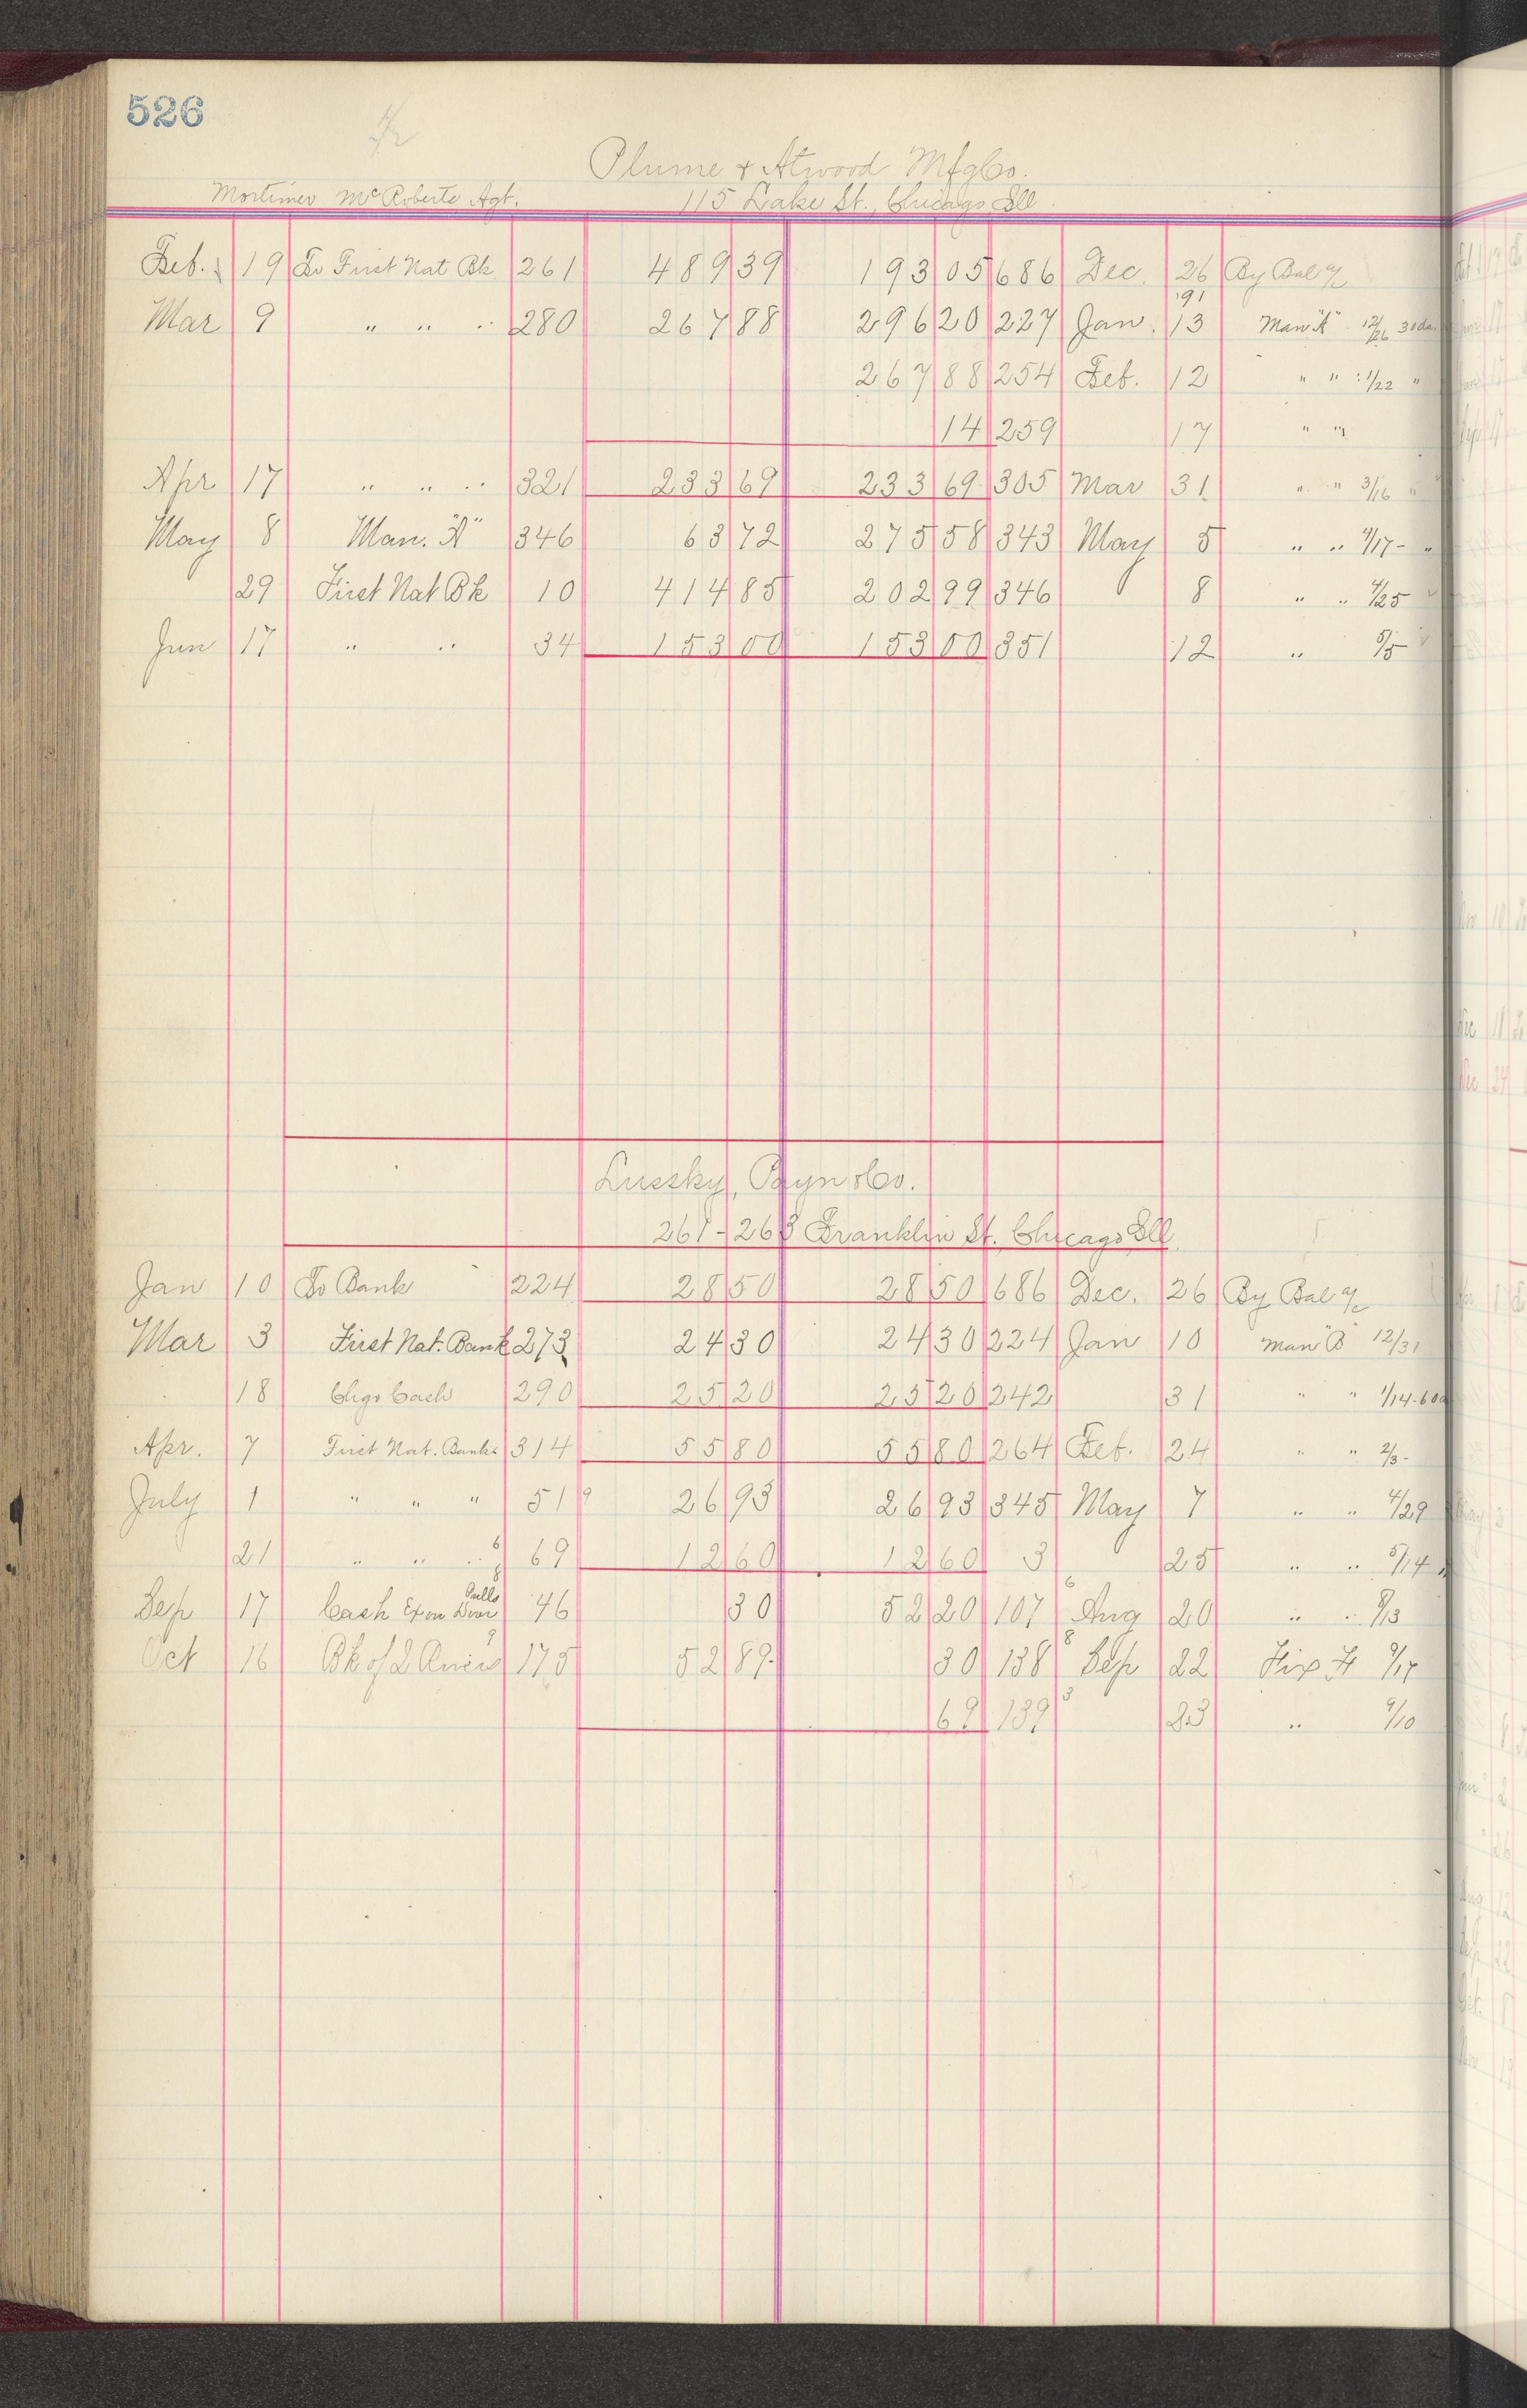 526
Plume & Atwood Mfg Co.
Mortimer McRoberts Agt. 115 Lake St., Chicago Ill
Feb. 19 To First Nat Bk 261 489 39 193 05 686 Dec. 26 By Bal a/c
'91
Mar 9 " " " 280 267 88 296 20 227 Jan. 13 Man "A" 12/26 30 da.
267 88 254 Feb. 12 " " 1/22 "
14 259 17 " "
Apr 17 " " " 321 233 69 233 69 305 Mar 31 " " 3/16 "
May 8 Man. "A" 346 63 72 275 58 343 May 5 " " 4/17 - "
29 First Nat Bk 10 414 85 202 99 346 8 " " 4/25 "
Jun 17 " " 34 153 00 153 00 351 12 " 5/5 "
Lussky, Payn & Co.
261-263 Franklin St. Chicago Ill
Jan 10 To Bank 224 28 50 28 50 686 Dec. 26 By Bal a/c
Mar 3 First Nat. Bank 273 24 30 24 30 224 Jan 10 Man "B" 12/31
18 Chgo Cash 290 25 20 25 20 242 31 " " 1/14-60
Apr. 7 First Nat. Bank 314 55 80 55 80 264 Feb. 24 " " 2/3-
July 1 " " " 51 26 93 26 93 345 May 7 " " 4/29
21 " " " 69 12 60 12 60 3 25 " " 5/14
Sep 17 Cash Ex on Door Pulls 46 30 52 20 107 Aug 20 " " 8/3
Oct 16 Bk of 175 52 89 30 138 Sep 22 9/17
69 139 23 " 9/10